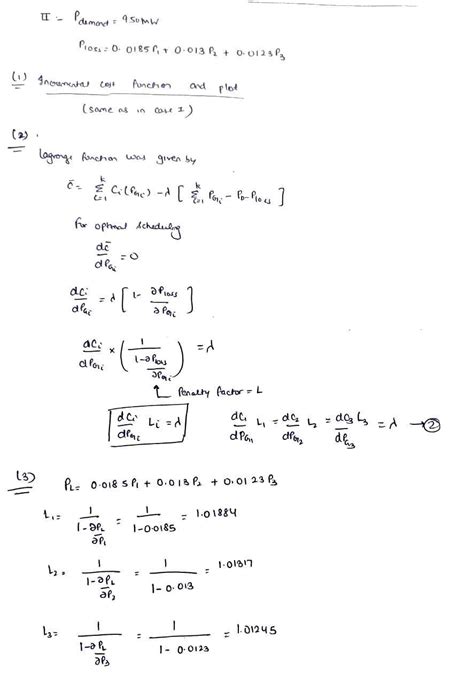 II :- Pdemand = 950MW
Ploss = 0.0185P1 + 0.013P2 + 0.0123P3
(1) Incremental cost function and plot
(same as in case I)
(2) .
Lagrange function was given by
C̄ = Σ(i=1 to k) Ci(PGi) - λ [ Σ(i=1 to k) PGi - PD - Ploss ]
for optimal scheduling
dC̄/dPGi = 0
dCi/dPGi = λ [ 1 - ∂Ploss/∂PGi ]
dCi/dPGi × ( 1/(1-∂Ploss/∂PGi) ) = λ
Penalty factor = L
dCi/dPGi Li = λ   dC1/dPG1 L1 = dC2/dPG2 L2 = dC3/dPG3 L3 = λ → ②
(3) PL = 0.0185P1 + 0.013P2 + 0.0123P3
L1 = 1/(1-∂PL/∂P1) = 1/(1-0.0185) = 1.01884
L2 = 1/(1-∂PL/∂P2) = 1/(1-0.013) = 1.01317
L3 = 1/(1-∂PL/∂P3) = 1/(1-0.0123) = 1.01245